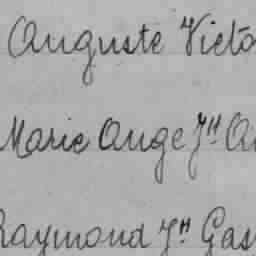 Auguste Victo
Marie Ange Jh A
Raymond Jh Gas